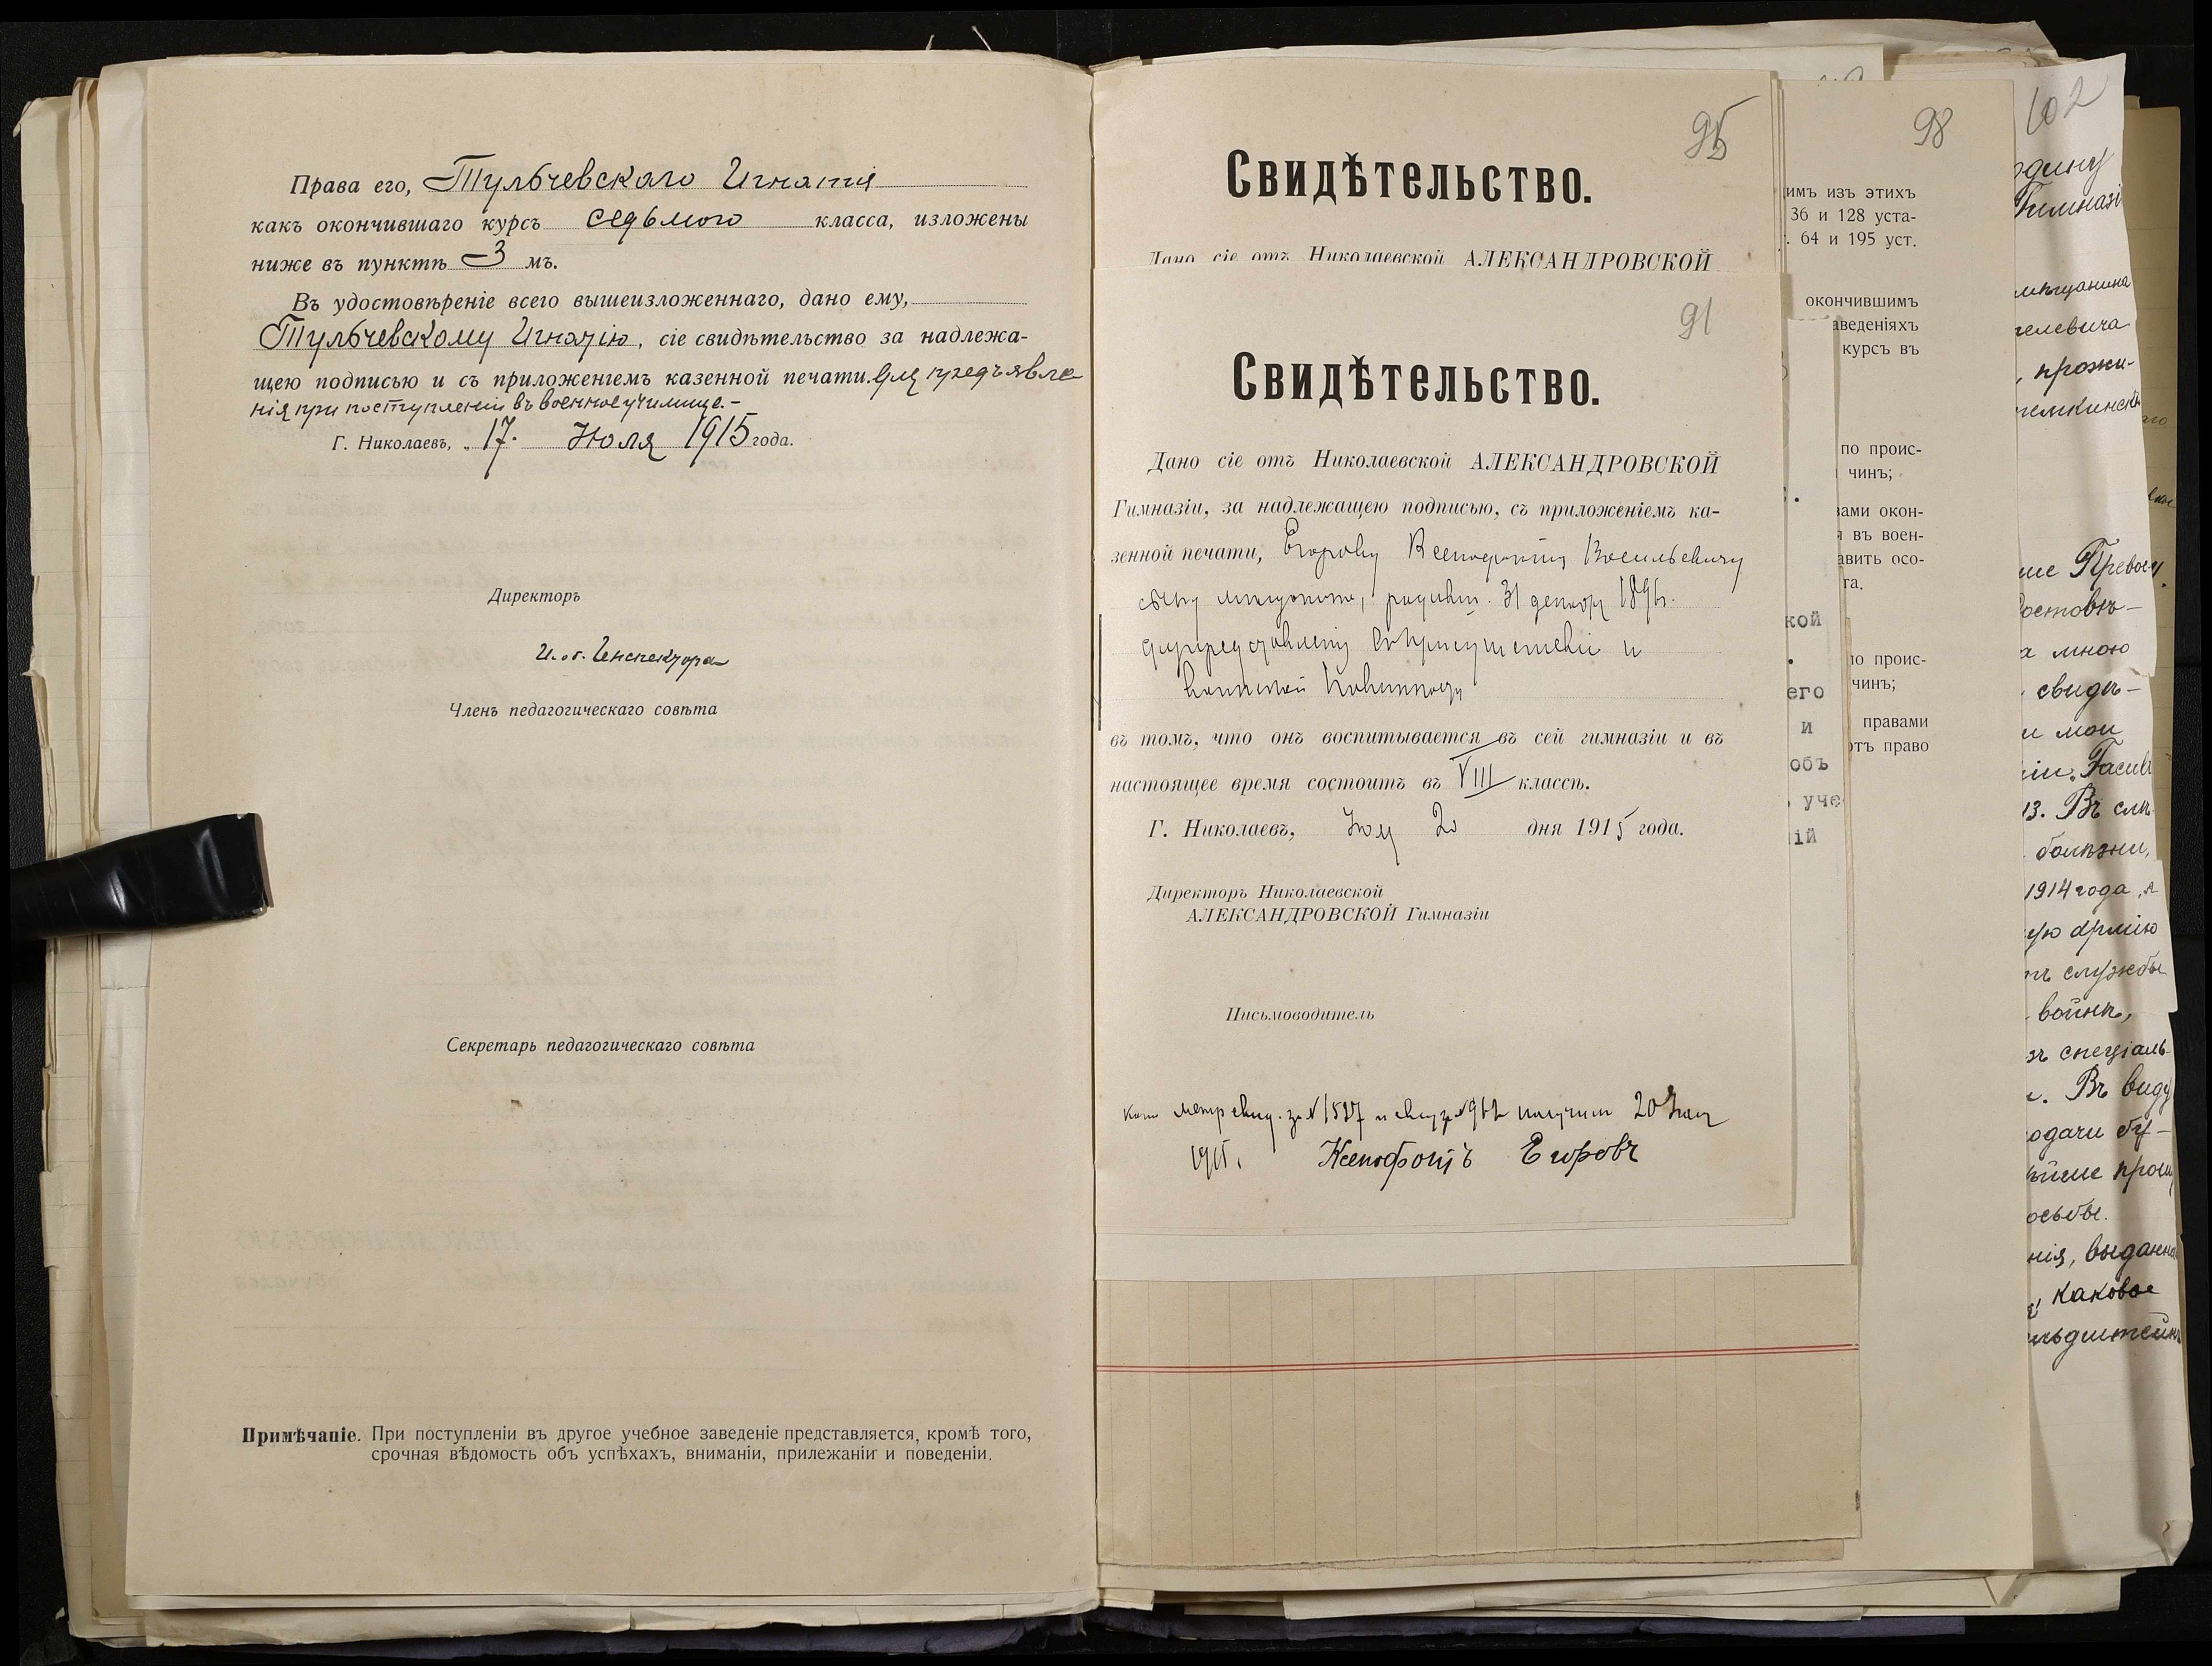 Права его, Тульчевскаго Игнатія
какъ окончившаго курсъ седьмого класса, изложены
ниже въ пунктѣ 3 мъ.
Въ удостовѣреніе всего вышеизложеннаго, дано ему,
Тульчевскому Игнатію, сіе свидѣтельство за надлежа-
щею подписью и съ приложеніемъ казенной печати. для предъявле-
нія при поступленіи въ военное училище.-
Г. Николаевъ, „ 17. Юоля 1915 года.
Директоръ
И. о. Инспектора
Членъ педагогическаго совѣта
Секретарь педагогическаго совѣта
Примѣчаніе. При поступленіи въ другое учебное заведеніе представляется, кромѣ того,
срочная вѣдомость объ успѣхахъ, вниманіи, прилежаніи и поведеніи.
95
Свидѣтельство.
Дано сіе отъ Николаевской АЛЕКСАНДРОВСКОЙ
91
Свидѣтельство.
Дано сіе отъ Николаевской АЛЕКСАНДРОВСКОЙ
Гимназіи, за надлежащею подписью, съ приложеніемъ ка-
зенной печати, Егорову Ксенофонту Васильевичу
сыну мѣщанина, родивш. 31 декабр 1896г.
для представленія въ присутствіе и
воинской повинности
въ томъ, что онъ воспитывается въ сей гимназіи и въ
настоящее время состоитъ въ VIII классѣ.
Г. Николаевъ, 20 дня 1915 года.
Директоръ Николаевской
АЛЕКСАНДРОВСКОЙ Гимназіи
Письмоводитель
метр свид. за № 1527 и свид за № 912 получил 20
1915. Ксенофонтъ Егоровъ
98
имъ изъ этихъ
36 и 128 уста-
. 64 и 195 уст.
окончившимъ
аведеніяхъ
курсъ въ
по проис-
чинъ;
вами окон-
въ воен-
авить осо-
га.
кой
по проис-
чинъ;
его
правами
и
отъ право
объ
уче
ій
102
одину
Гимназі
мѣщанина
елевича
, прожи-
темкинской
ше Превосх
мною
свидѣ-
и мои
13. Въ слѣ
болѣзни,
1914 года, я
ую армію
службы
войнѣ,
спеціаль-
. Въ виду
одачи бу-
осьбы.
нія, выданна
каковое